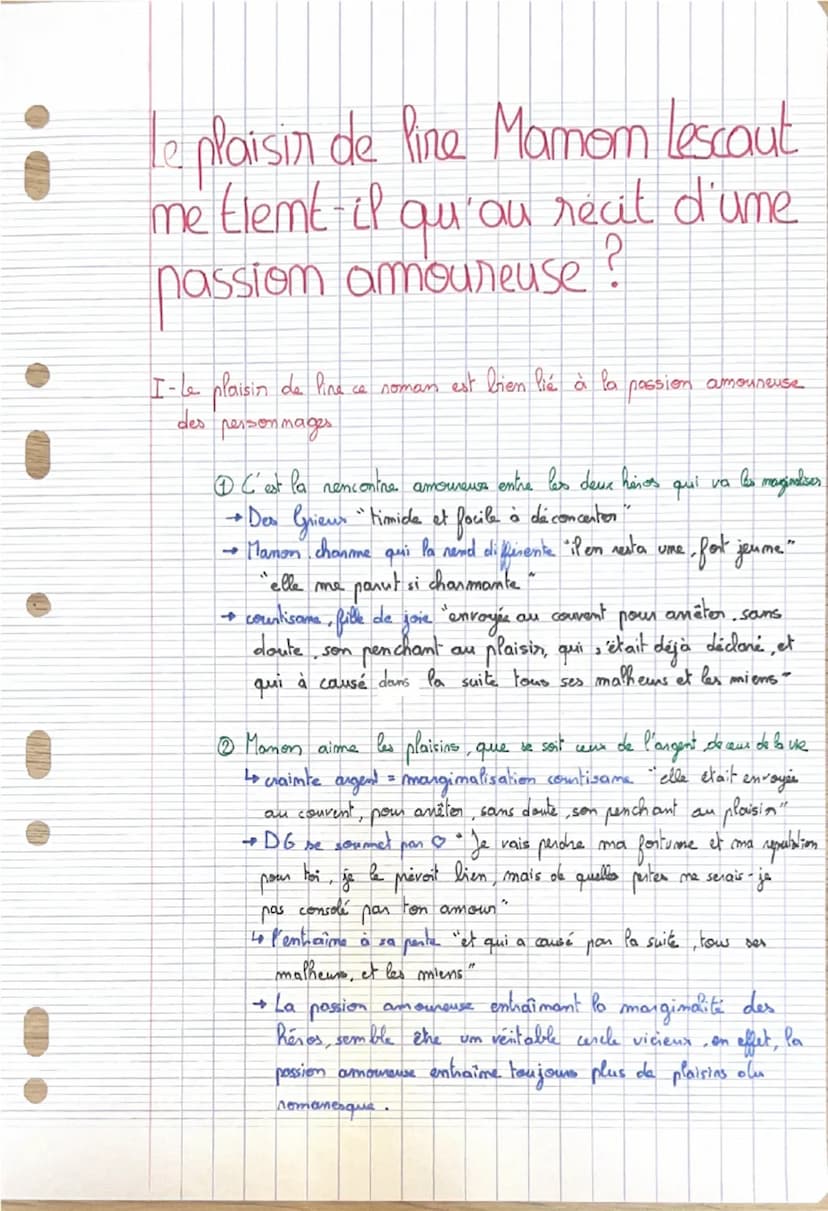 Le plaisir de lire Manon Lescaut
ne tient-il qu'au récit d'une
passion amoureuse ?
I - Le plaisir de lire ce roman est bien lié à la passion amoureuse
des personnages
① C'est la rencontre amoureuse entre les deux héros qui va les marginaliser
→ Des Grieux "timide et facile à déconcerter"
→ Manon : charme qui la rend différente "il en resta une, fort jeune"
"elle me parut si charmante"
→ courtisane, fille de joie "envoyée au couvent pour arrêter, sans
doute, son penchant au plaisir, qui s'était déjà déclaré, et
qui à causé dans la suite tous ses malheurs et les miens"
② Manon aime les plaisirs, que se soit ceux de l'argent, de ceux de la vie
↳ crainte argent = marginalisation courtisane "elle était envoyée
au couvent, pour arrêter, sans doute, son penchant au plaisir"
→ DG se soumet par ♡ "Je vais perdre ma fortune et ma reputation
pour toi, je le prévoit bien, mais de quelles pertes ne serais-je
pas consolé par ton amour"
↳ l'entraîne à sa perte "et qui a causé par la suite, tous ses
malheurs, et les miens"
→ La passion amoureuse entraînant la marginalité des
héros, semble être un véritable cercle vicieux, en effet, la
passion amoureuse entraîne toujours plus de plaisirs du
romanesque.